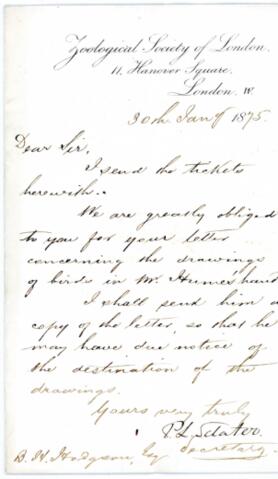 Zoological Society of London.
11, Hanover Square.
London. W.
30th Jany 1875.
Dear Sir,
I send the tickets
herewith.
We are greatly obliged
to you for your letter
concerning the drawings
of birds in Mr. Hume's hand
I shall send him a
copy of the letter, so that he
may have due notice of
the destination of the
drawings.
Yours very truly
P. L. Sclater.
B. H. Hodgson, Esq Secretary.